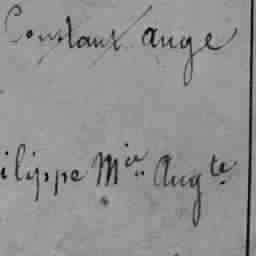 Constant Ange
ilippe Mie Augte